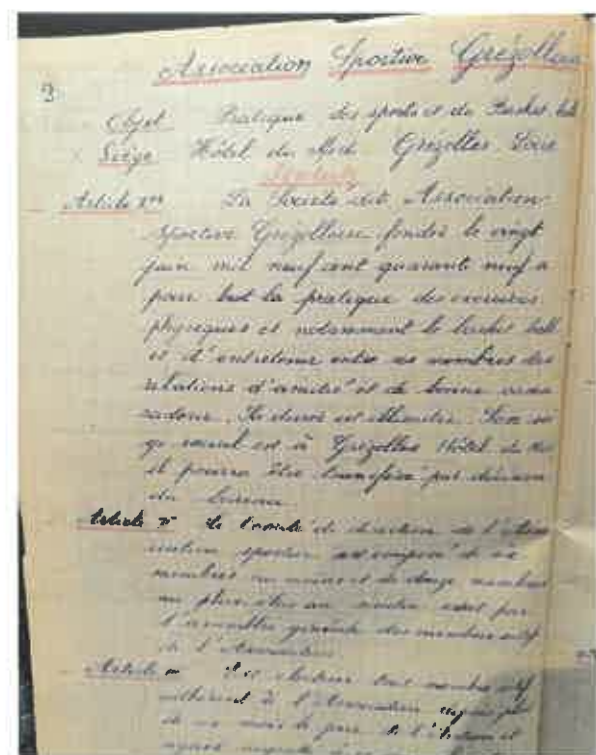 3
Association Sportive Grézollien
Objet Pratique des sports et du Basket-ball
Siège Hôtel du Midi Grézolles Loire
Statuts
Article 1er La Société dite Association
Sportive Grézollien fondée le vingt
juin mil neuf cent quarante neuf a
pour but la pratique des exercices
physiques et notamment le basket ball
et d'entretenir entre ses membres des
relations d'amitié et de bonne cama
raderie. Sa durée est illimitée. Son siè
ge social est à Grézolles Hôtel du Midi
il pourra être transféré par décision
du bureau.
Article 2 Le Comité de direction de l'Asso
ciation sportive est composé de six
membres au moins et de douze membres
au plus élus au scrutin secret par
l'assemblée générale des membres actifs
de l'Association
Article Est électeur tout membre actif
adhérent à l'Association depuis plus
de six mois le jour de l'élection et
ayant